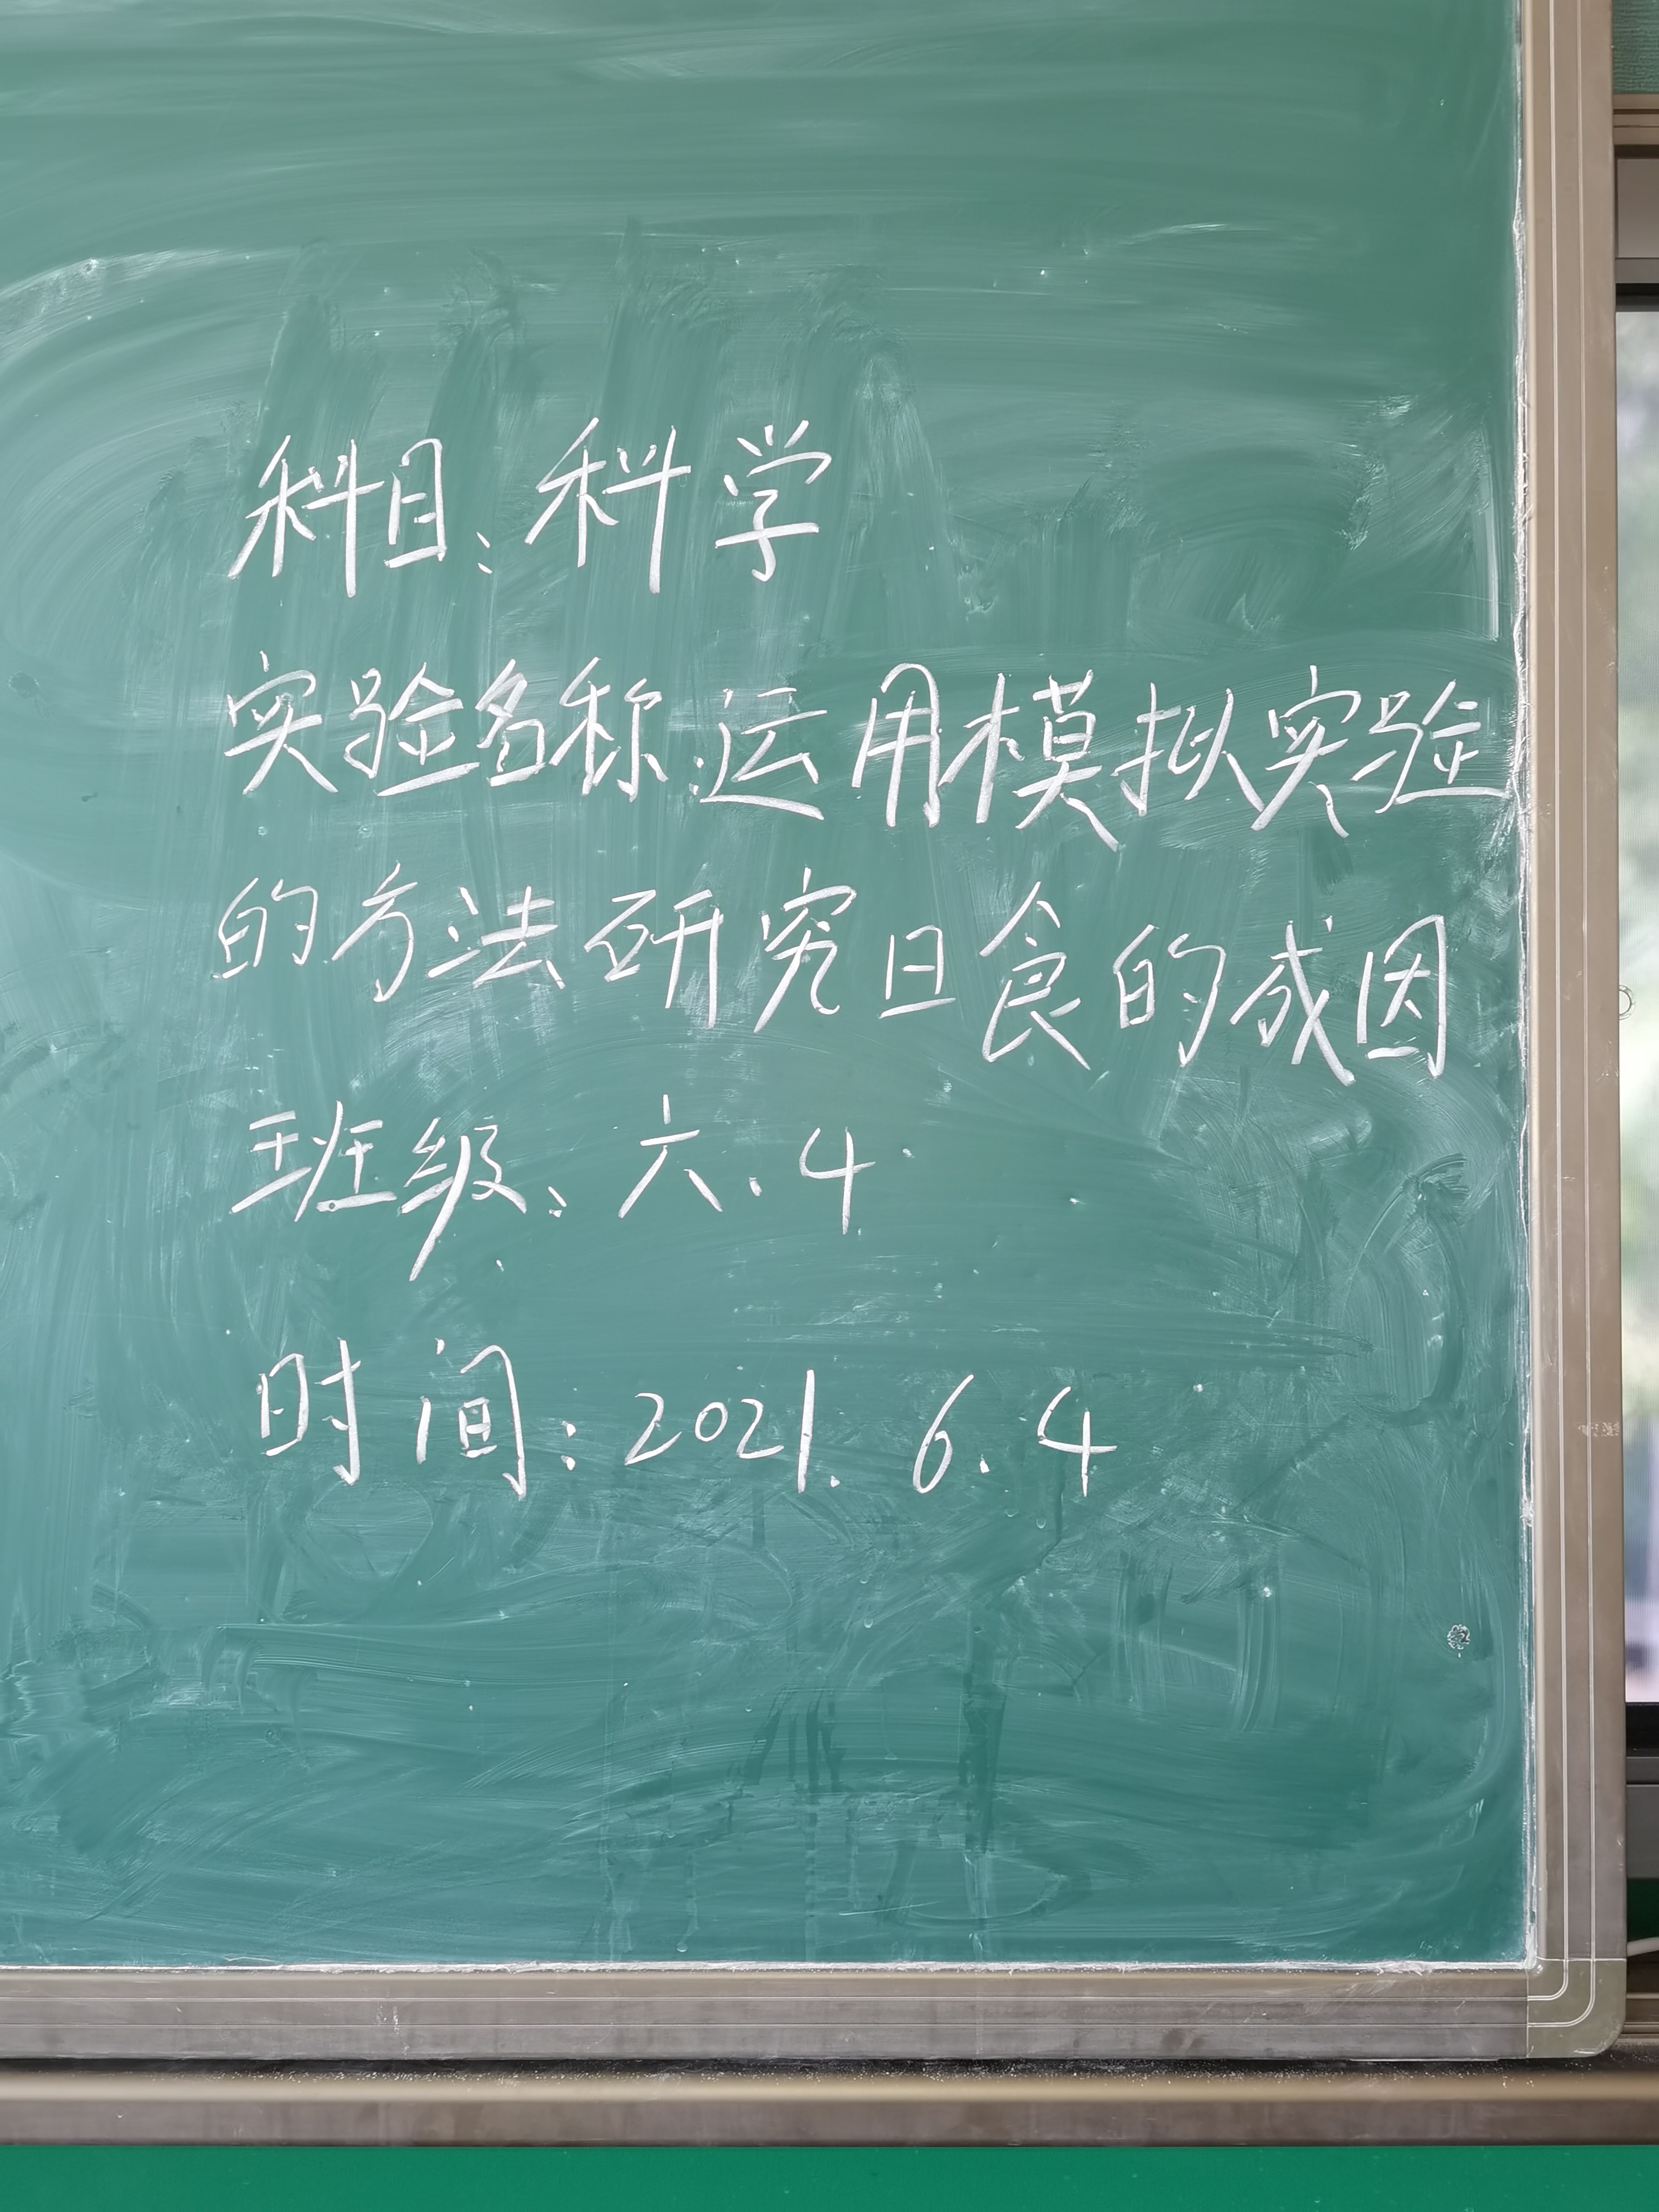 科目：科学
实验名称：运用模拟实验
的方法研究日食的成因
班级：六.4
时间：2021.6.4